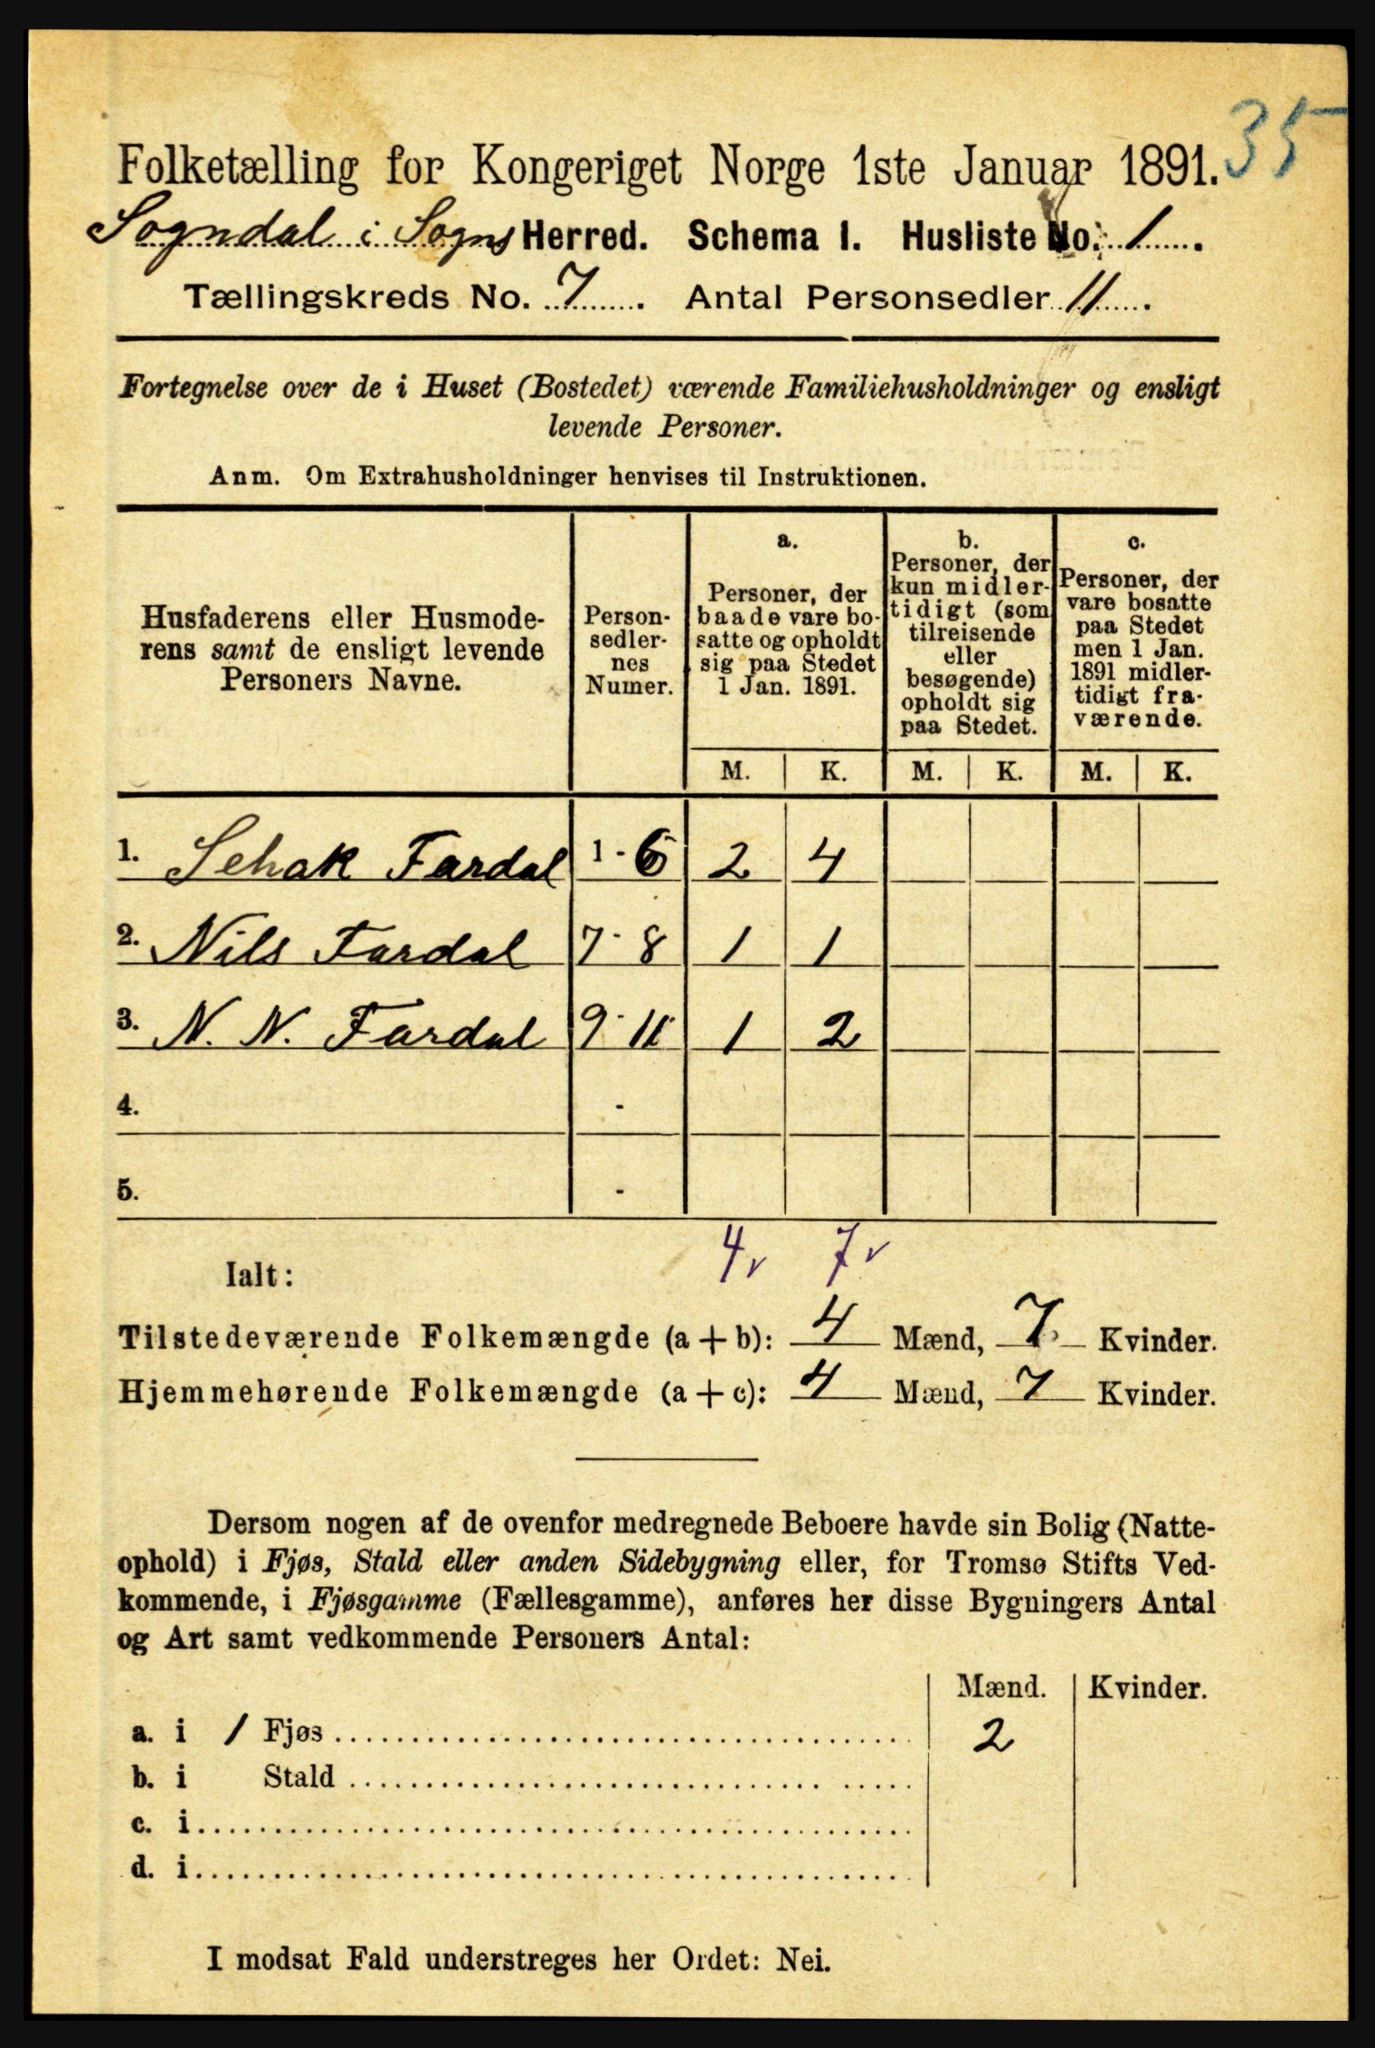 35
Folketælling for Kongeriget Norge 1ste Januar 1891.
Sogndal i Sogns Herred. Schema I. Husliste No. 1.
Tællingskreds No. 7. Antal Personsedler 11.
Fortegnelse over de i Huset (Bostedet) værende Familiehusholdninger og ensligt
levende Personer.
Anm. Om Extrahusholdninger henvises til Instruktionen.
Husfaderens eller Husmode-
rens samt de ensligt levende
Personers Navne.
Person-
sedler-
nes
Numer.
a.
Personer, der
baade vare bo-
satte og opholdt
sig paa Stedet
1 Jan. 1891.
b.
Personer, der
kun midler-
tidigt (som
tilreisende
eller
besøgende)
opholdt sig
paa Stedet.
c.
Personer, der
vare bosatte
paa Stedet
men 1 Jan.
1891 midler-
tidigt fra-
værende.
M. K. M. K. M. K.
1. Sehak Fardal 1-6 2 4
2. Nils Fardal 7-8 1 1
3. N. N. Fardal 9-11 1 2
4. -
5. -
4v 7v
Ialt:
Tilstedeværende Folkemængde (a + b): 4 Mænd, 7 Kvinder.
Hjemmehørende Folkemængde (a + c): 4 Mænd, 7 Kvinder.
Dersom nogen af de ovenfor medregnede Beboere havde sin Bolig (Natte-
ophold) i Fjøs, Stald eller anden Sidebygning eller, for Tromsø Stifts Ved-
kommende, i Fjøsgamme (Fællesgamme), anføres her disse Bygningers Antal
og Art samt vedkommende Personers Antal:
Mænd. Kvinder.
a. i 1 Fjøs 2
b. i Stald
c. i
d. i
I modsat Fald understreges her Ordet: Nei.